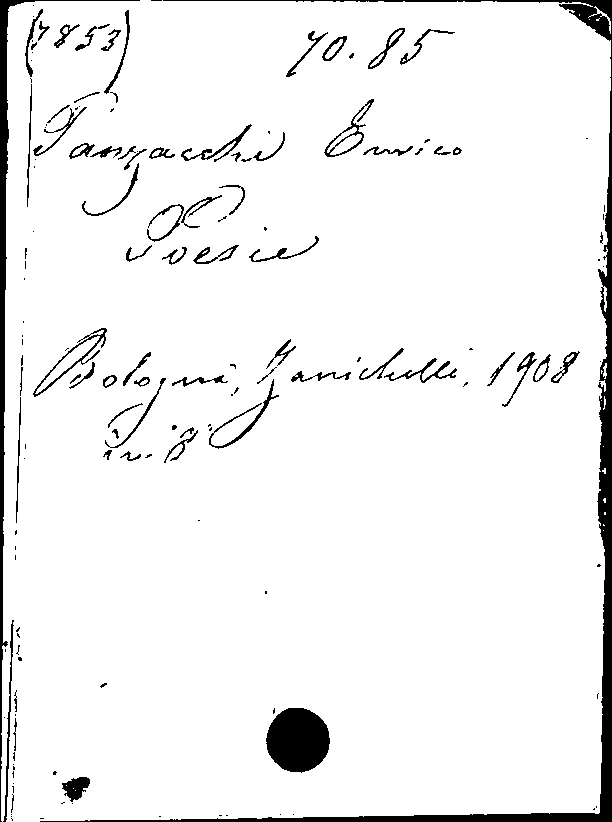 (7853)
70.85
Panzacchi Enrico
Poesie
Bologna, Zanichelli, 1908
in 8°